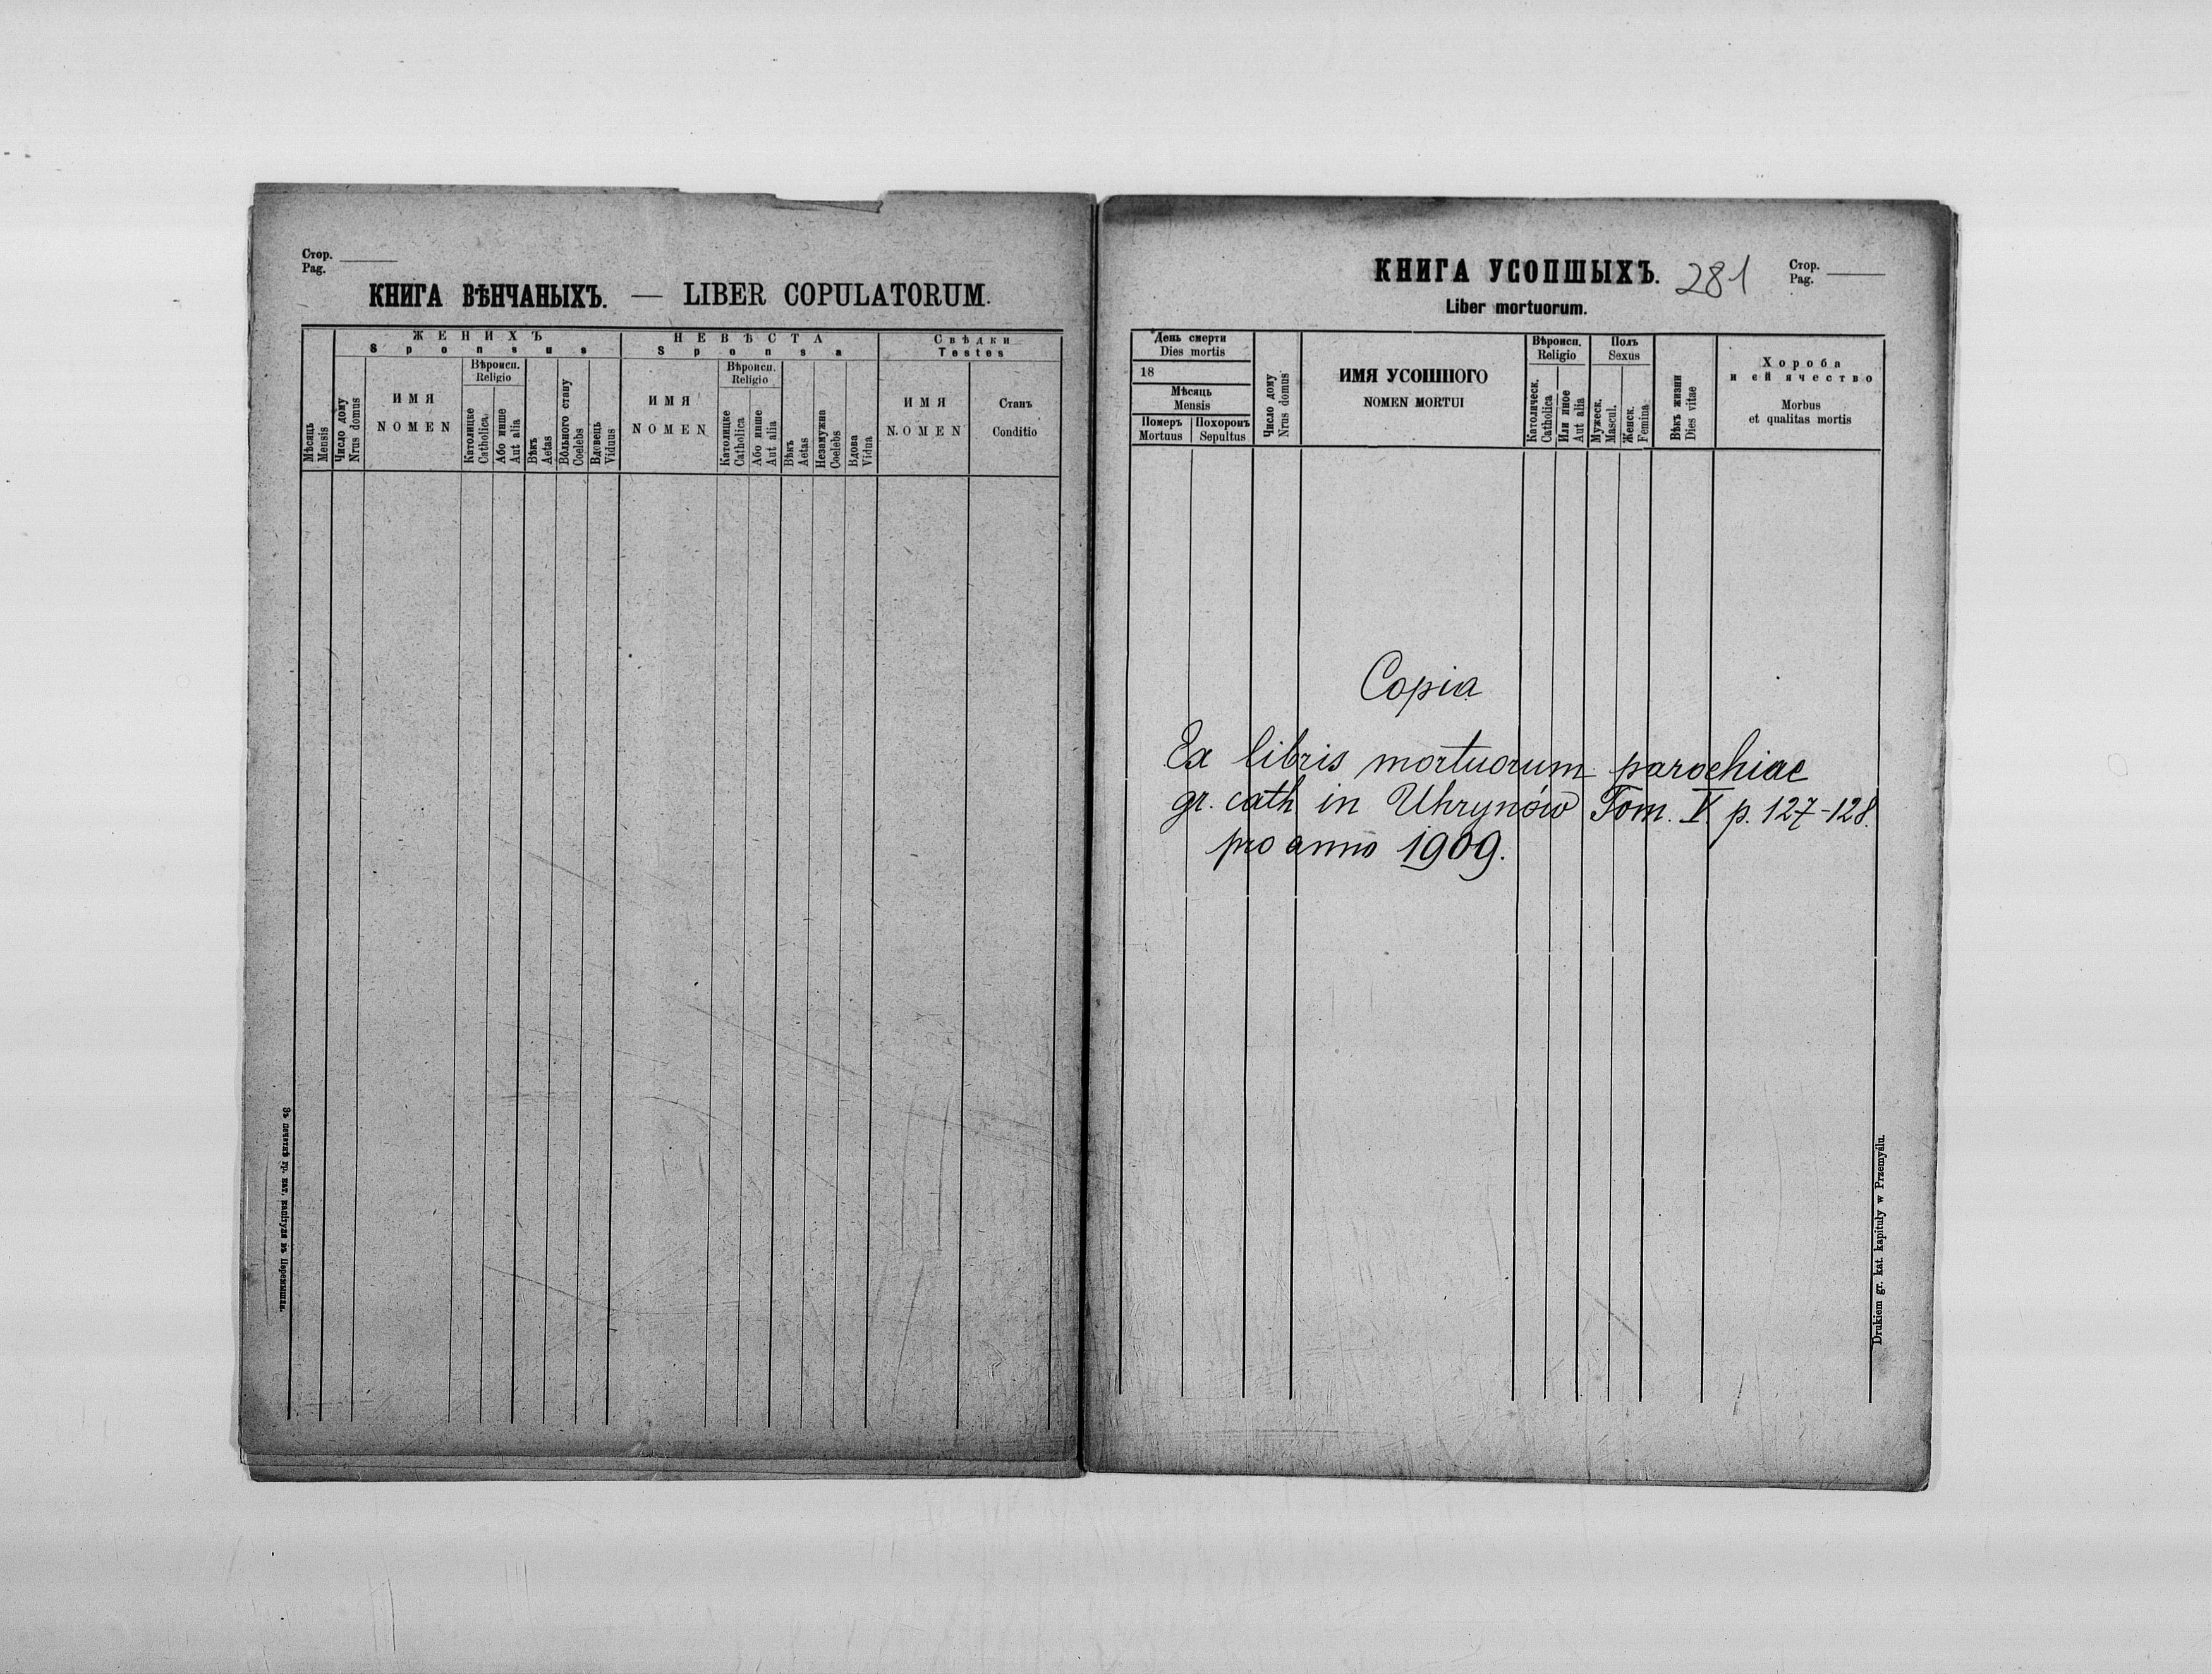 Стор.
Pag.
КНИГА ВѢНЧАНЫХЪ. — LIBER COPULATORUM.
Мѣсяць
Mensis
Число дому
Nrus domus
ЖЕНИХЪ
Sponsus
ИМЯ
NOMEN
Вѣроисп.
Religio
Католицке
Catholica
Або инше
Aut alia
Вѣкъ
Aetas
Вольного стану
Coelebs
Вдовець
Viduus
НЕВѢСТА
Sponsa
ИМЯ
NOMEN
Вѣроисп.
Religio
Католицке
Catholica
Або инше
Aut alia
Вѣкъ
Aetas
Незамужна
Coelebs
Вдова
Vidua
Свѣдки
Testes
ИМЯ
NOMEN
Станъ
Conditio
Зъ печатнѣ гр. кат. капитулы въ Перемышли.
КНИГА УСОПШЫХЪ. 281
Стор.
Pag.
Liber mortuorum.
День смерти
Dies mortis
18
Мѣсяць
Mensis
Померъ
Mortuus
Похоронъ
Sepultus
Число дому
Nrus domus
ИМЯ УСОПШОГО
NOMEN MORTUI
Вѣроисп.
Religio
Католическ.
Catholica
Или иное
Aut alia
Полъ
Sexus
Мужеск.
Mascul.
Женск.
Femina
Вѣкъ жизни
Dies vitae
Хороба
и ей ячество
Morbus
et qualitas mortis
Copia
Ex libris mortuorum parochiae
gr. cath. in Uhrynów Tom. V. p. 127-128.
pro anno 1909.
Drukiem gr. kat. kapituły w Przemyślu.